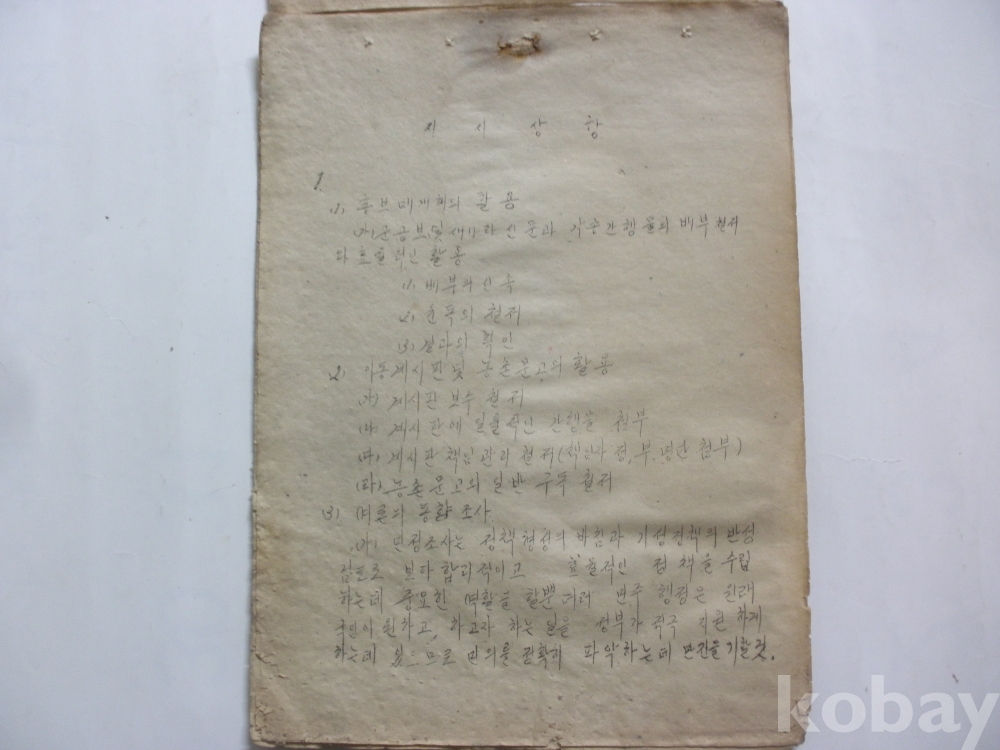 지 시 상 항
1.
(1) 홍보매개체의 활용
(가) 군공보 및 새나라신문과 각종간행물의 배부철저
와 효율적인 활용
(1) 배부의 신속
(2) 윤독의 철저
(3) 결과의 확인
(2) 이동게시판 및 농촌문고의 활용
(가) 게시판 보수 철저
(나) 게시판에 간행물 첨부
(다) 게시판 책임관리 철저(책임자 정,부.명단 첨부)
(라) 농촌문고의 철저
(3) 여론의 동향조사
(가) 조사는 정책형성의 바침과 기성정책의 반성
점으로 보다 합리적이고 효율적인 정책을 수립
하는데 중요한 역활을 할뿐더러 민주 행정은 원래
국민이 원하고, 하고자 하는 일을 정부가 적극 하게
하는데 있으므로 민의를 정확히 파악하는데 만전을 기할것.
kobay